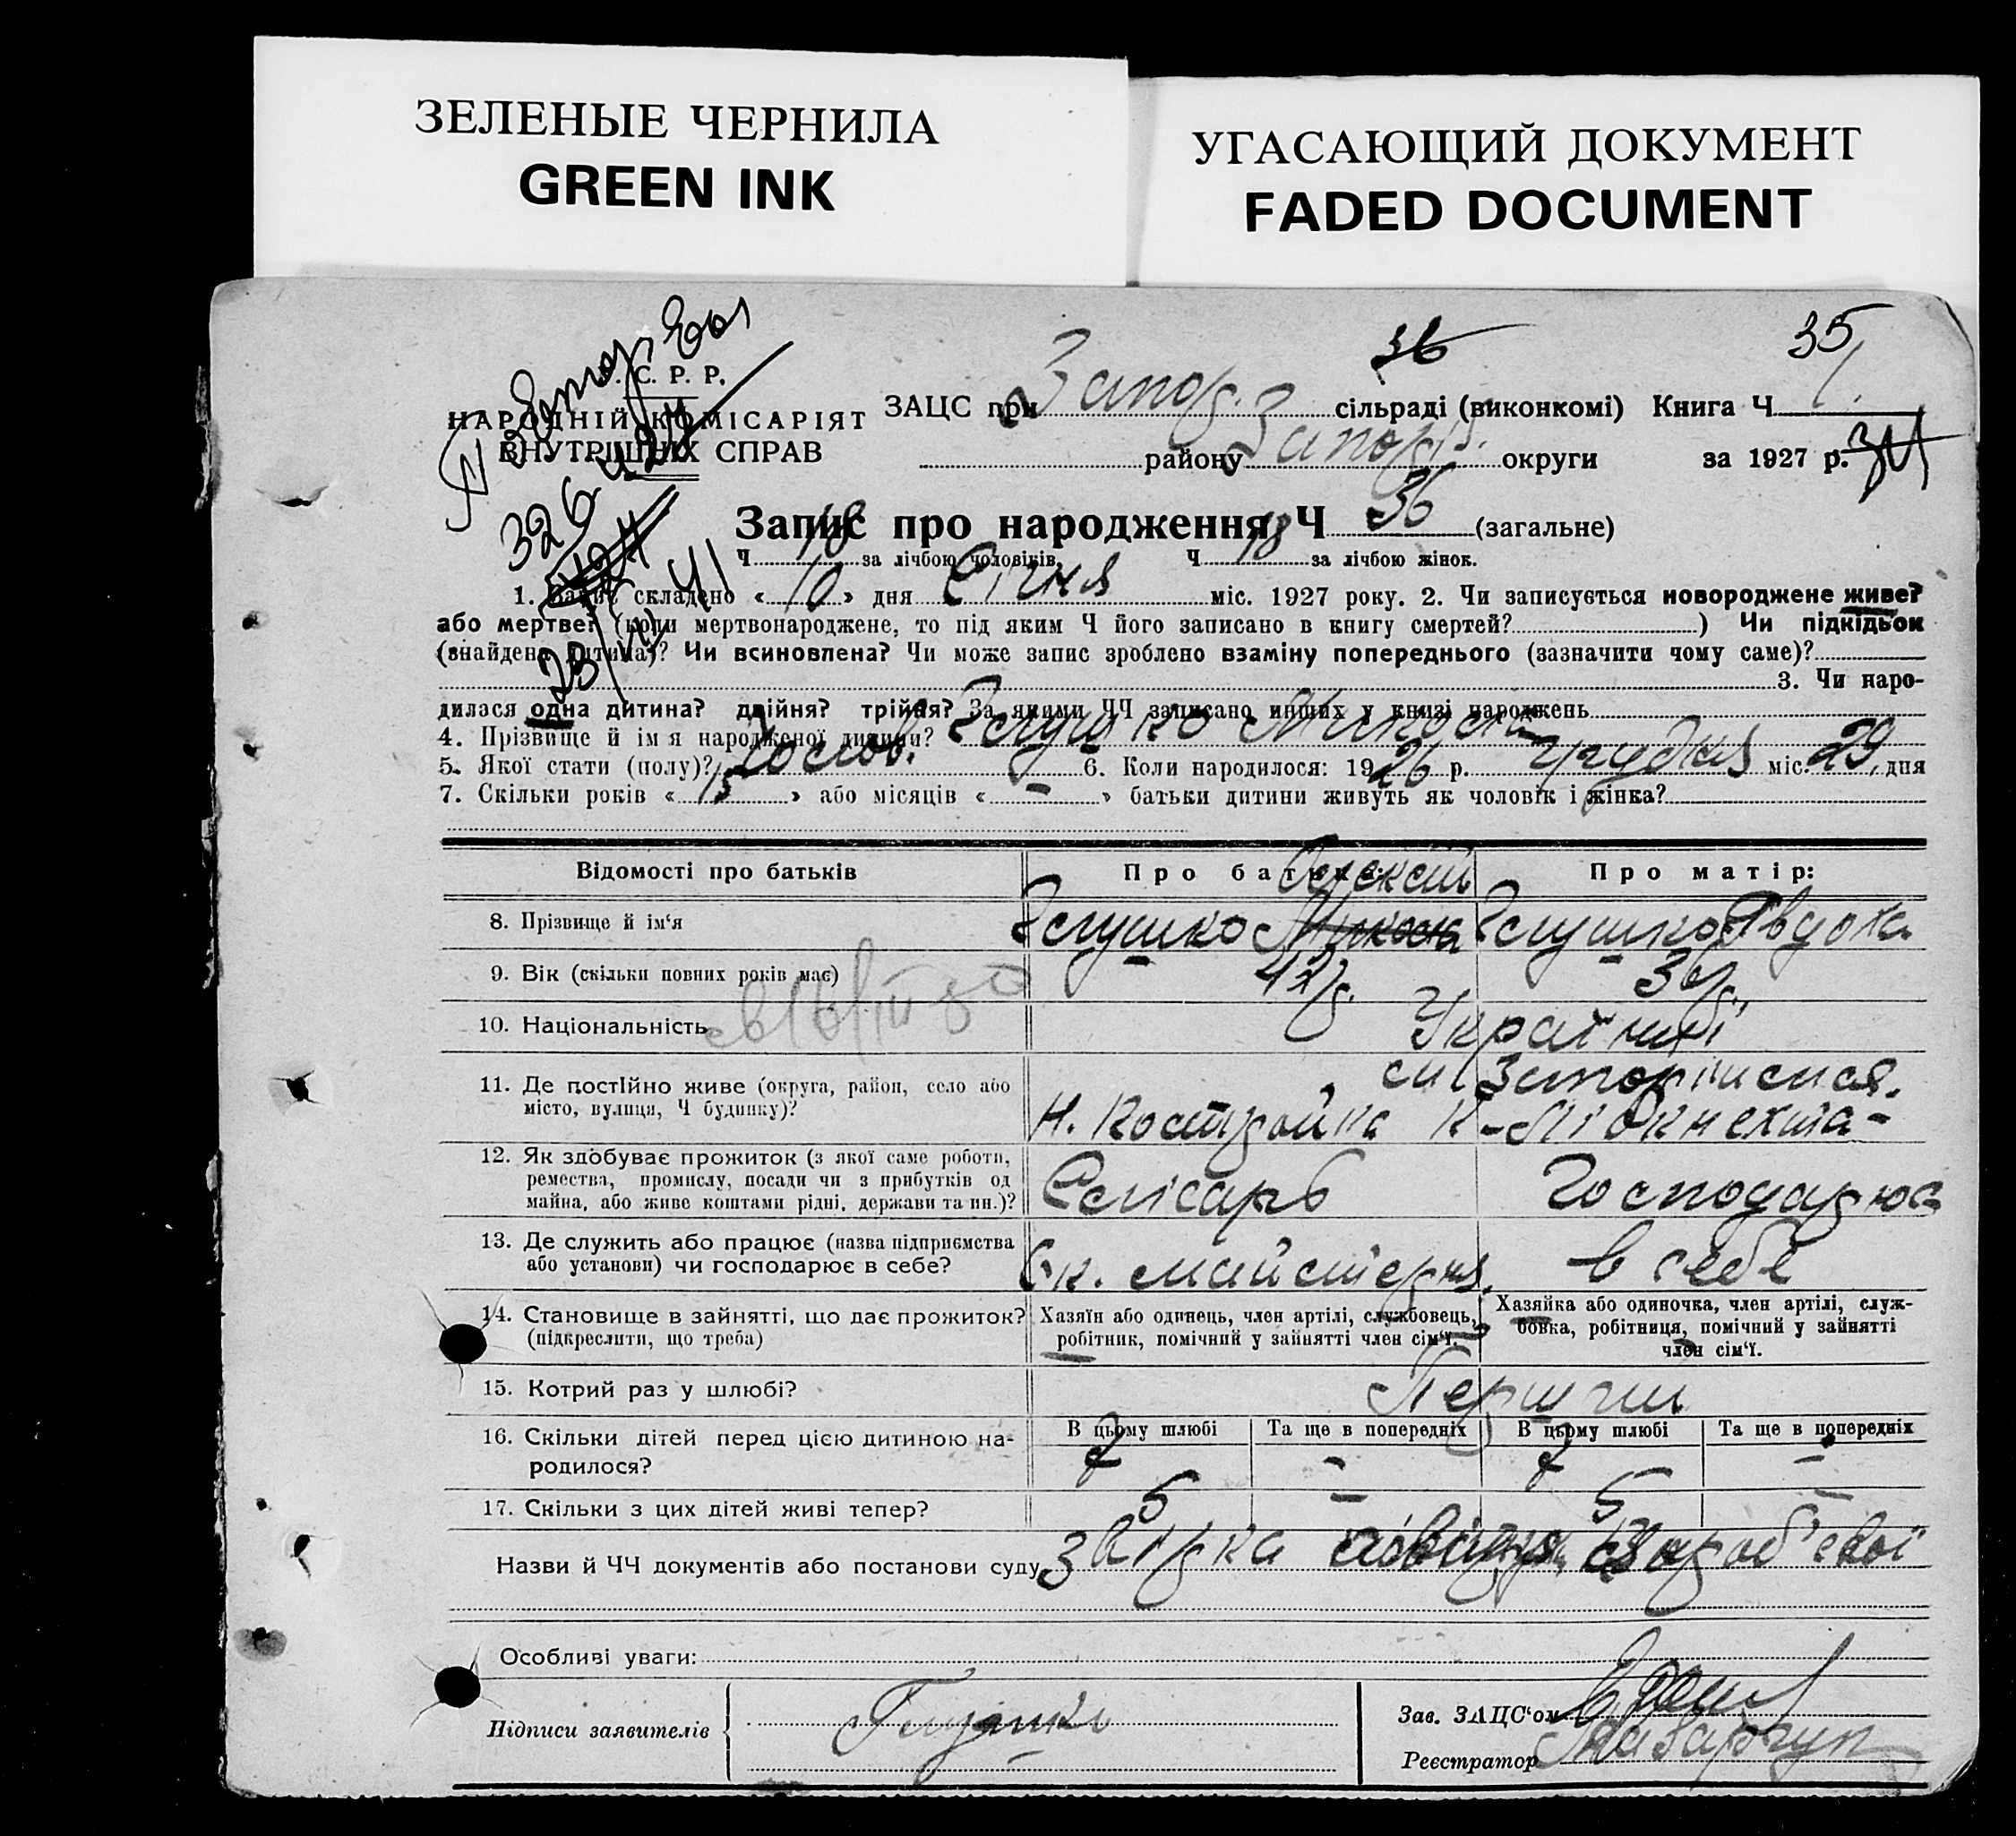 ЗЕЛЕНЫЕ ЧЕРНИЛА
GREEN INK
УГАСАЮЩИЙ ДОКУМЕНТ
FADED DOCUMENT
36
35
С. Р. Р.
НАРОДНІЙ КОМІСАРІЯТ
ВНУТРІШНІХ СПРАВ
ЗАЦС при Запор. сільраді (виконкомі) Книга Ч 1.
району Запоріз. округи за 1927 р.
Запис про народження Ч 36 (загальне)
Ч 18 за лічбою чоловіків, Ч 18 за лічбою жінок.
1. Запис складено « 10 » дня Січня міс. 1927 року. 2. Чи записується новороджене живе?
або мертве? (коли мертвонароджене, то під яким Ч його записано в книгу смертей? ) Чи підкідьок
(знайдена дитина)? Чи всиновлена? Чи може запис зроблено взаміну попереднього (зазначити чому саме)?
3. Чи наро-
дилася одна дитина? двійня? трійня? За якими ЧЧ записано инших у книзі народжень
4. Прізвище й ім'я народженої дитини? Глушко Микола
5. Якої стати (полу)? Чолов. 6. Коли народилося: 1926 р. грудня міс. 29 дня
7. Скільки років « 15 » або місяців « – » батьки дитини живуть як чоловік і жінка?
Відомості про батьків Про батька: Про матір:
Олексій
8. Прізвище й ім'я Глушко Микола Глушко Явдоха
9. Вік (скільки повних років має) 42 р. 36 р.
10. Національність Україн
11. Де постійно живе (округа, район, село або
місто, вулиця, Ч будинку)?
Н. Костройка К-Лібкнехта-
12. Як здобуває прожиток (з якої саме роботи,
ремества, промислу, посади чи з прибутків од
майна, або живе коштами рідні, держави та ин.)?
Слісарь Господарює
13. Де служить або працює (назва підприємства
або установи) чи господарює в себе?
майстерня в себе
14. Становище в зайнятті, що дає прожиток?
(підкреслити, що треба)
Хазяїн або одинець, член артілі, службовець,
робітник, помічний у зайнятті член сім'ї.
Хазяйка або одиночка, член артілі, служ-
бовка, робітниця, помічний у зайнятті
член сім'ї.
15. Котрий раз у шлюбі? Перший
16. Скільки дітей перед цією дитиною на-
родилося?
В цьому шлюбі Та ще в попередніх В цьому шлюбі Та ще в попередніх
7 – 7 –
17. Скільки з цих дітей живі тепер? 5 – 5 –
Назви й ЧЧ документів або постанови суду
Особливі уваги:
Підписи заявителів Глушко
Зав. ЗАЦС'ом
Реєстратор